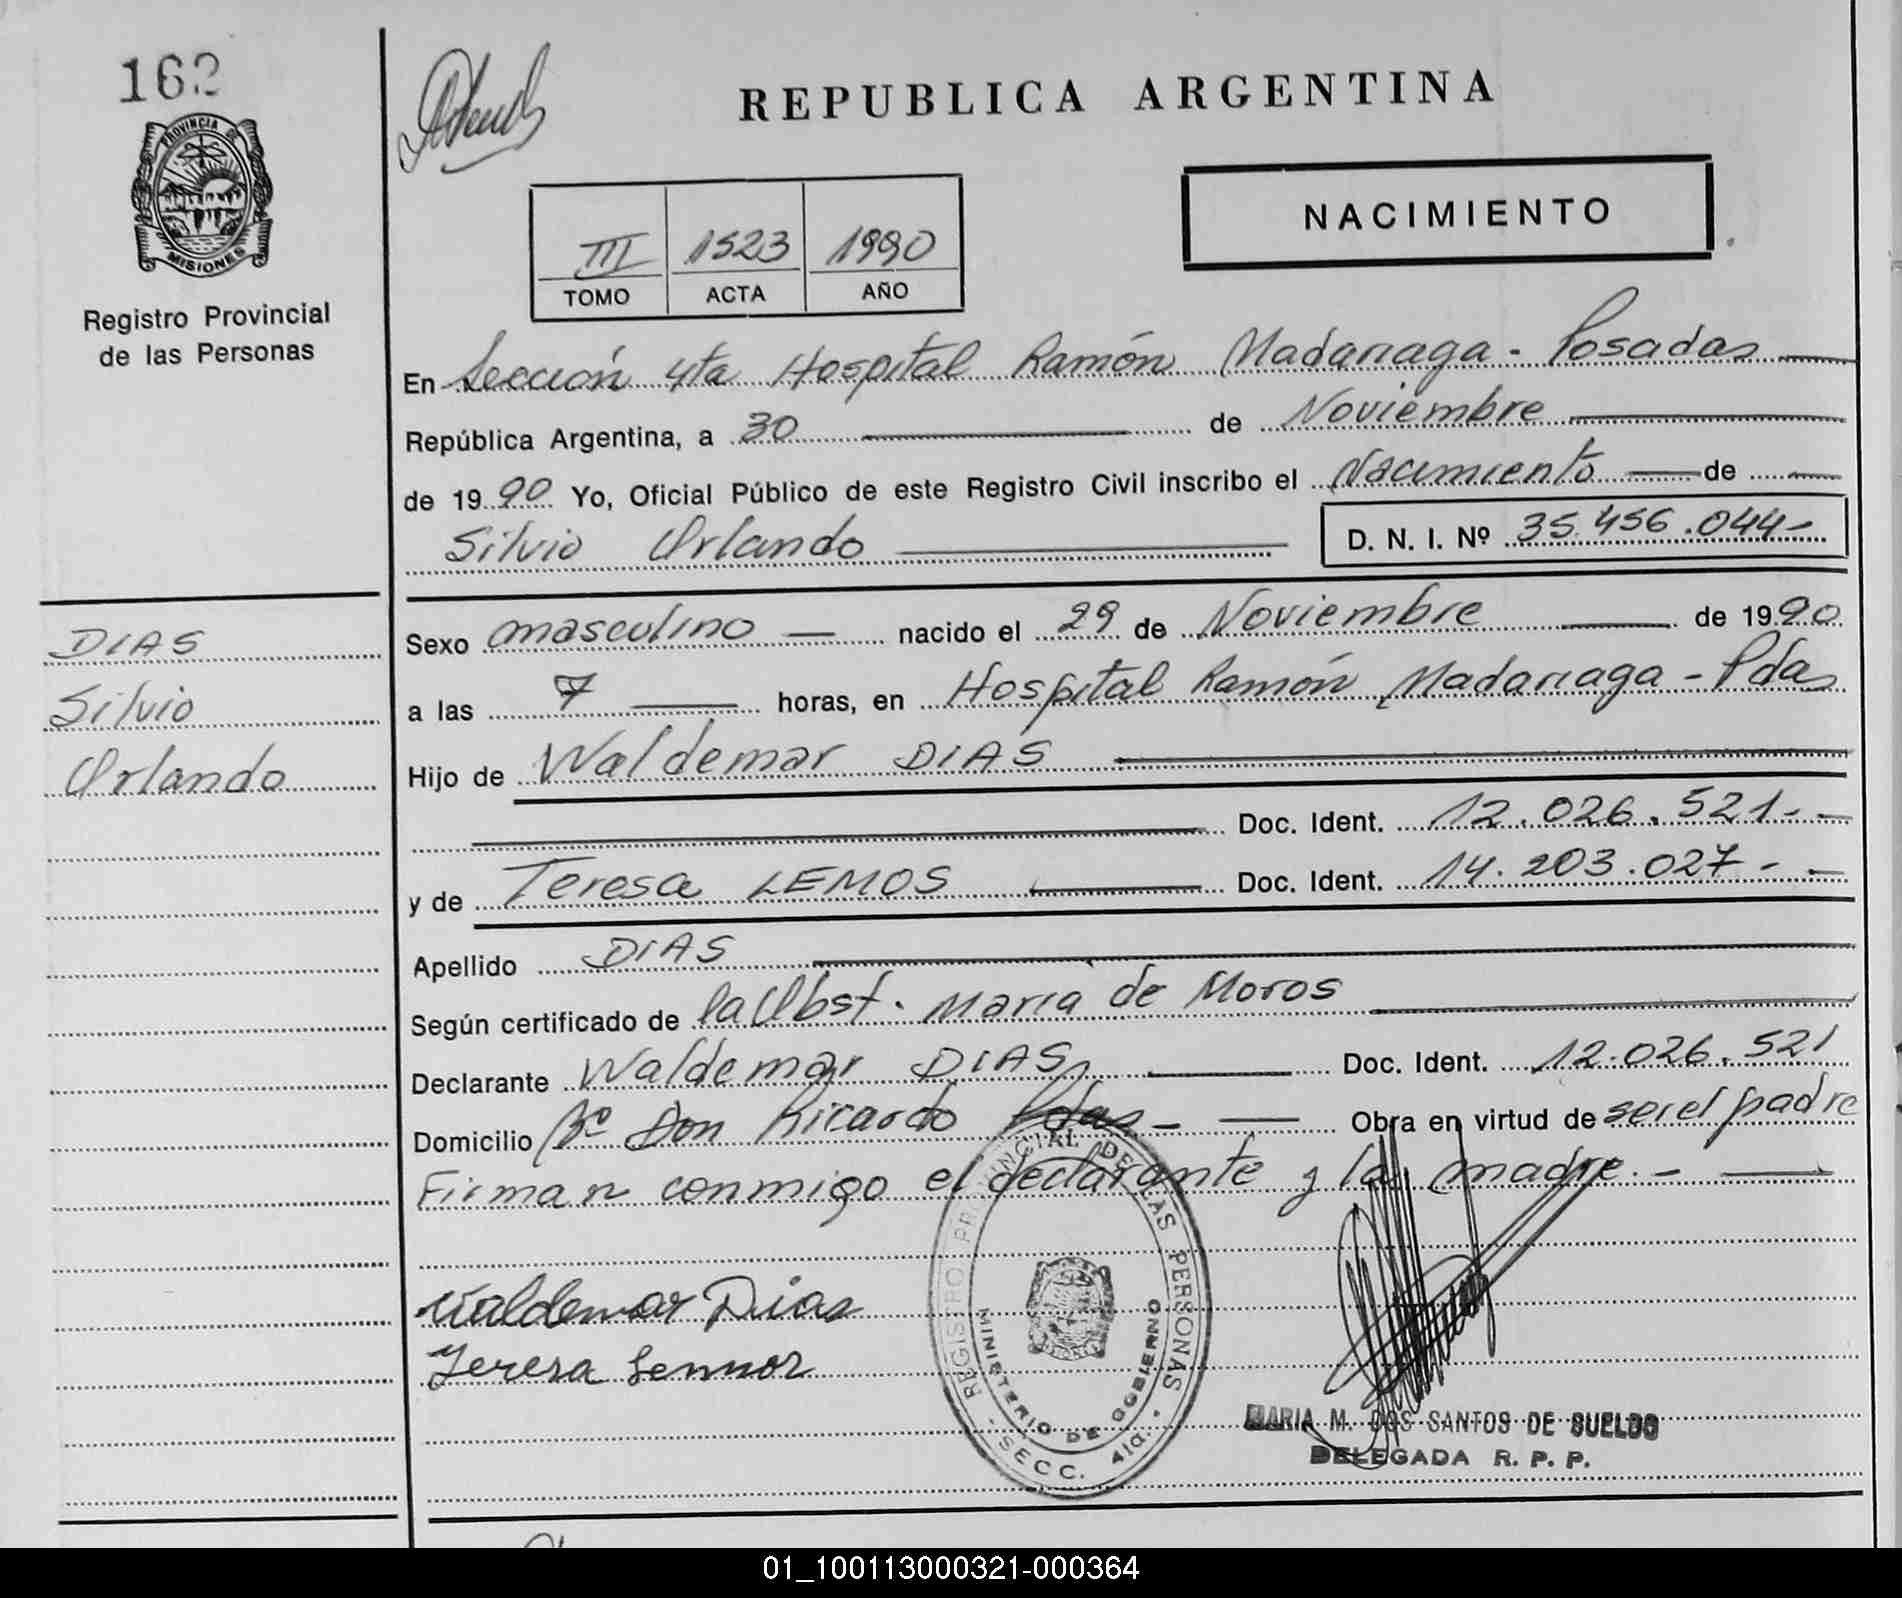 162
PROVINCIA DE
MISIONES
Registro Provincial
de las Personas
REPUBLICA ARGENTINA
NACIMIENTO
III 1523 1990
TOMO ACTA AÑO
En Sección 4ta Hospital Ramón Madariaga - Posadas
República Argentina, a 30 de Noviembre
de 1990 Yo, Oficial Público de este Registro Civil inscribo el Nacimiento de
Silvio Orlando D. N. I. Nº 35.456.044-
DIAS
Silvio
Orlando
Sexo masculino nacido el 29 de Noviembre de 1990
a las 7 horas, en Hospital Ramón Madariaga - Pdas
Hijo de Waldemar DIAS
Doc. Ident. 12.026.521.-
y de Teresa LEMOS Doc. Ident. 14.203.027.-
Apellido DIAS
Según certificado de la Obst. María de Moros
Declarante Waldemar DIAS Doc. Ident. 12.026.521
Domicilio Bº Don Ricardo Pdas - Obra en virtud de ser el padre
Firman conmigo el declarante y la madre.-
Waldemar Dias
Teresa
REGISTRO PROVINCIAL DE LAS PERSONAS
MINISTERIO DE GOBIERNO
SECC. 4ta.
MARIA M. DOS SANTOS DE SUELDO
DELEGADA R. P. P.
01_100113000321-000364